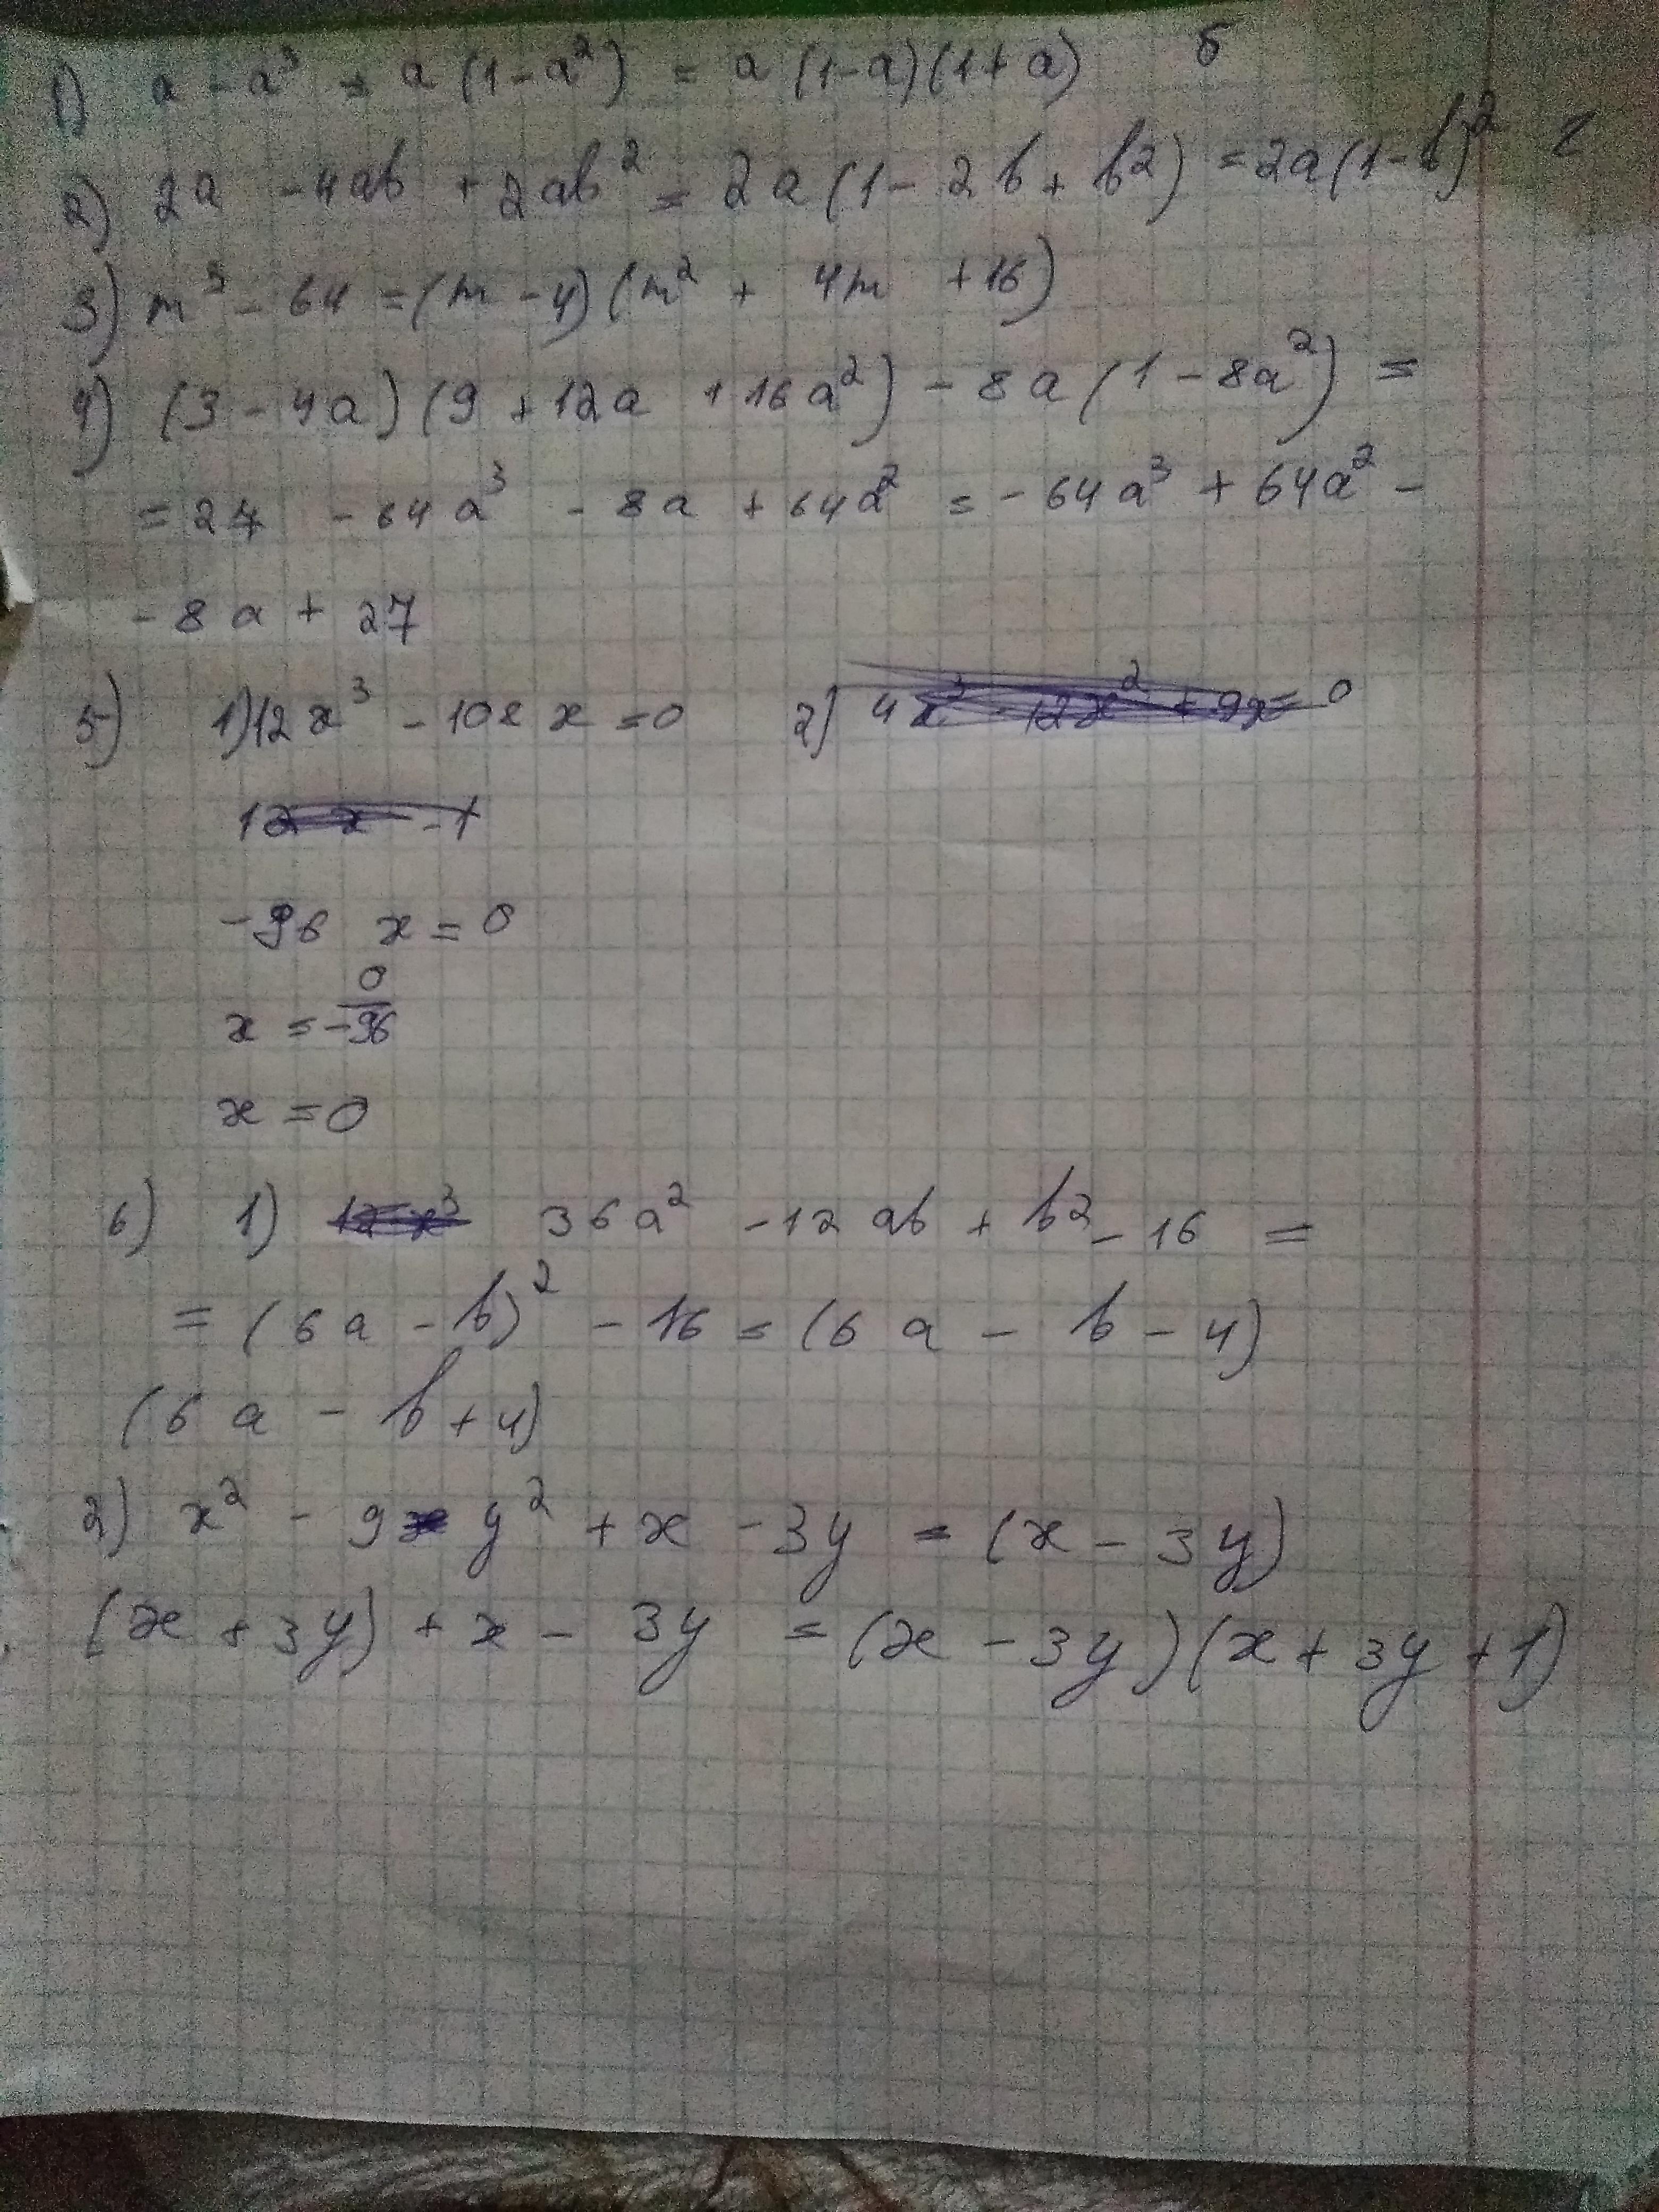 1) a - a³ = a (1 - a²) = a (1-a)(1+a) б
2) 2a - 4ab + 2ab² = 2a (1 - 2b + b²) = 2a(1-b)² г
3) m³ - 64 = (m - 4)(m² + 4m + 16)
4) (3 - 4a)(9 + 12a + 16a²) - 8a (1 - 8a²) =
= 27 - 64a³ - 8a + 64a² = - 64a³ + 64a² -
- 8a + 27
5) 1) 12x³ - 108x = 0 2) 4x³ - 12x² + 9x = 0
12x - 1
-96 x = 0
x = 0/-96
x = 0
6) 1) 12x³ 36a² - 12ab + b² - 16 =
= (6a - b)² - 16 = (6a - b - 4)
(6a - b + 4)
2) x² - 9y² + x - 3y = (x - 3y)
(x + 3y) + x - 3y = (x - 3y)(x + 3y + 1)